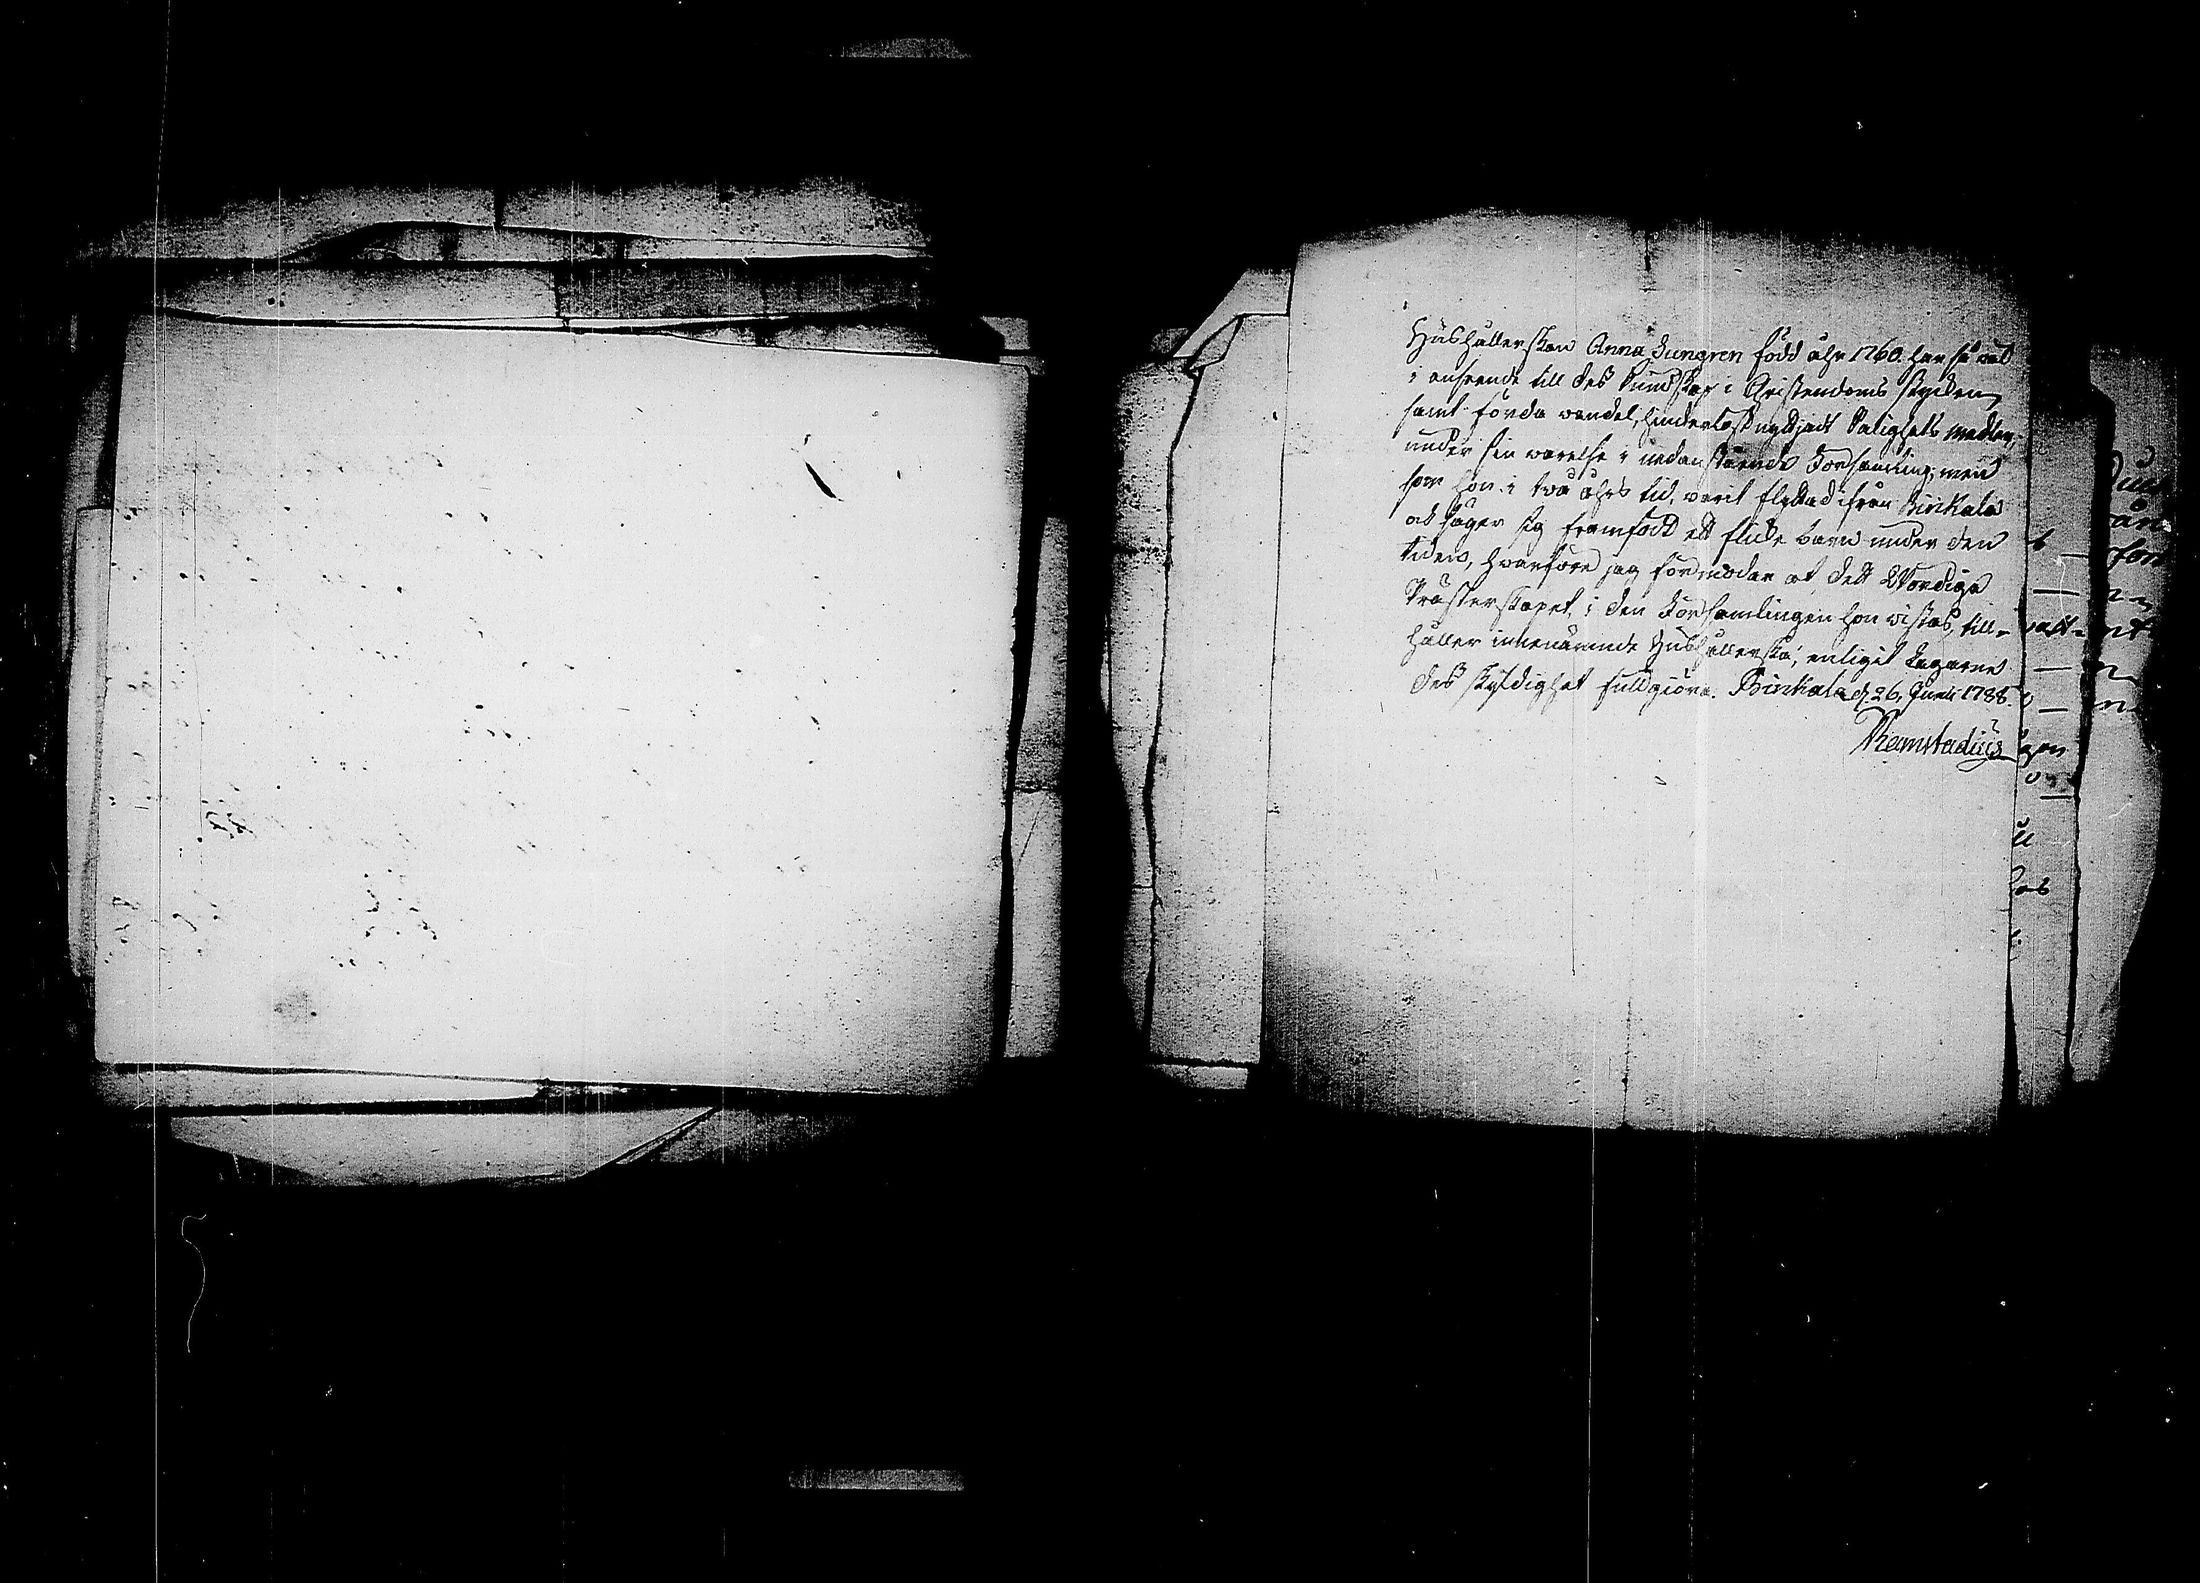 Hushållerskan Anna Ljungren född åhr 1760. har så väl
i anseende till des kundskap i Christendoms stycken
samt förda wandel, hinderlöst nyttjadt Salighets medlen,
under sin warelse i nedanstående Församling; men
som hon i två åhrs tid varit flyttad ifrån Birkala
och säger sig framfödt ett flicke barn under den
tiden, hvarföre jag förmodar at dett Wördiga
Prästerskapet i den Församlingen hon vistas, till-
håller innenämnde Hushållerska, enligit Lagarne
des skyldighet fullgiöra. Birkala d. 26. Junii 1788.
Ramstadius